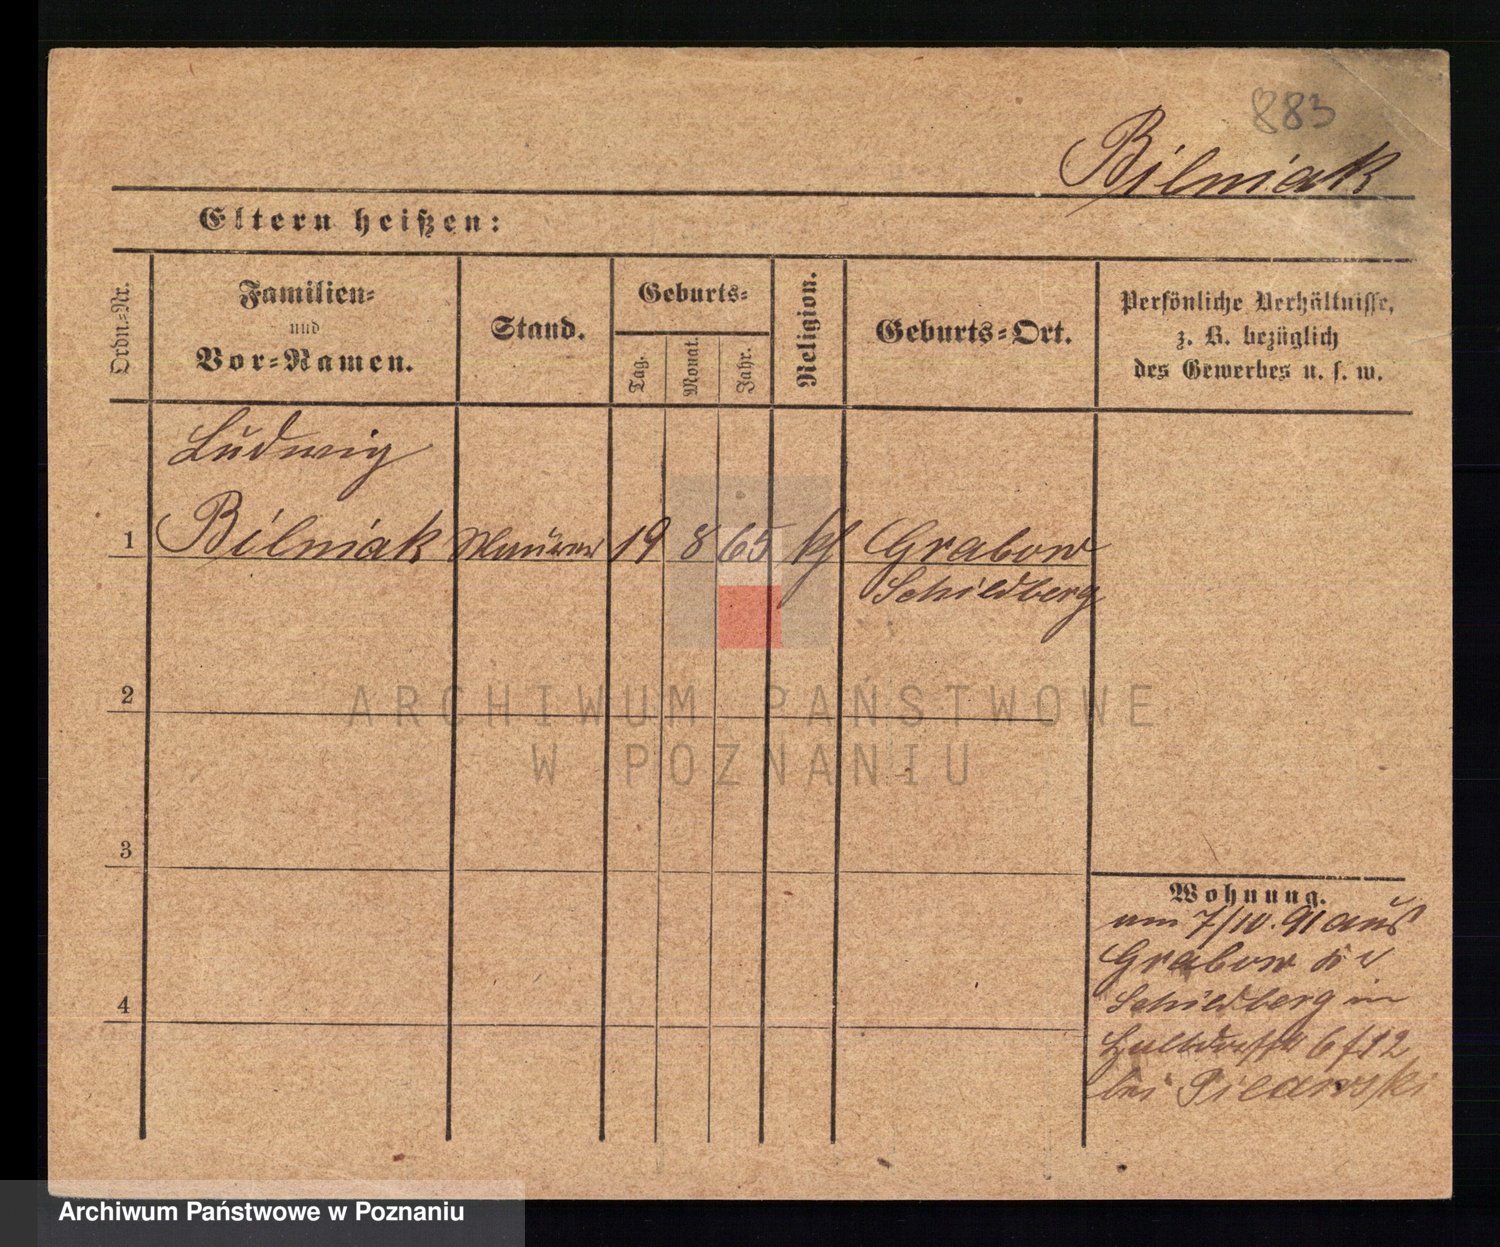 883
Bilniak
Eltern heißen:
Ordn.-Nr.
Familien-
und
Vor-Namen.
Stand.
Geburts-
Tag.
Monat.
Jahr.
Religion.
Geburts-Ort.
Persönliche Verhältnisse,
z. B. bezüglich
des Gewerbes u. s. w.
Ludwig
1 Bilniak Maurer 19 8 65 kf Grabow
Schildberg
2
ARCHIWUM PAŃSTWOWE
W POZNANIU
3
4
Wohnung.
am 7/10.91 aus
Grabow
Schildberg in
6 f 12
bei Pilarski
Archiwum Państwowe w Poznaniu